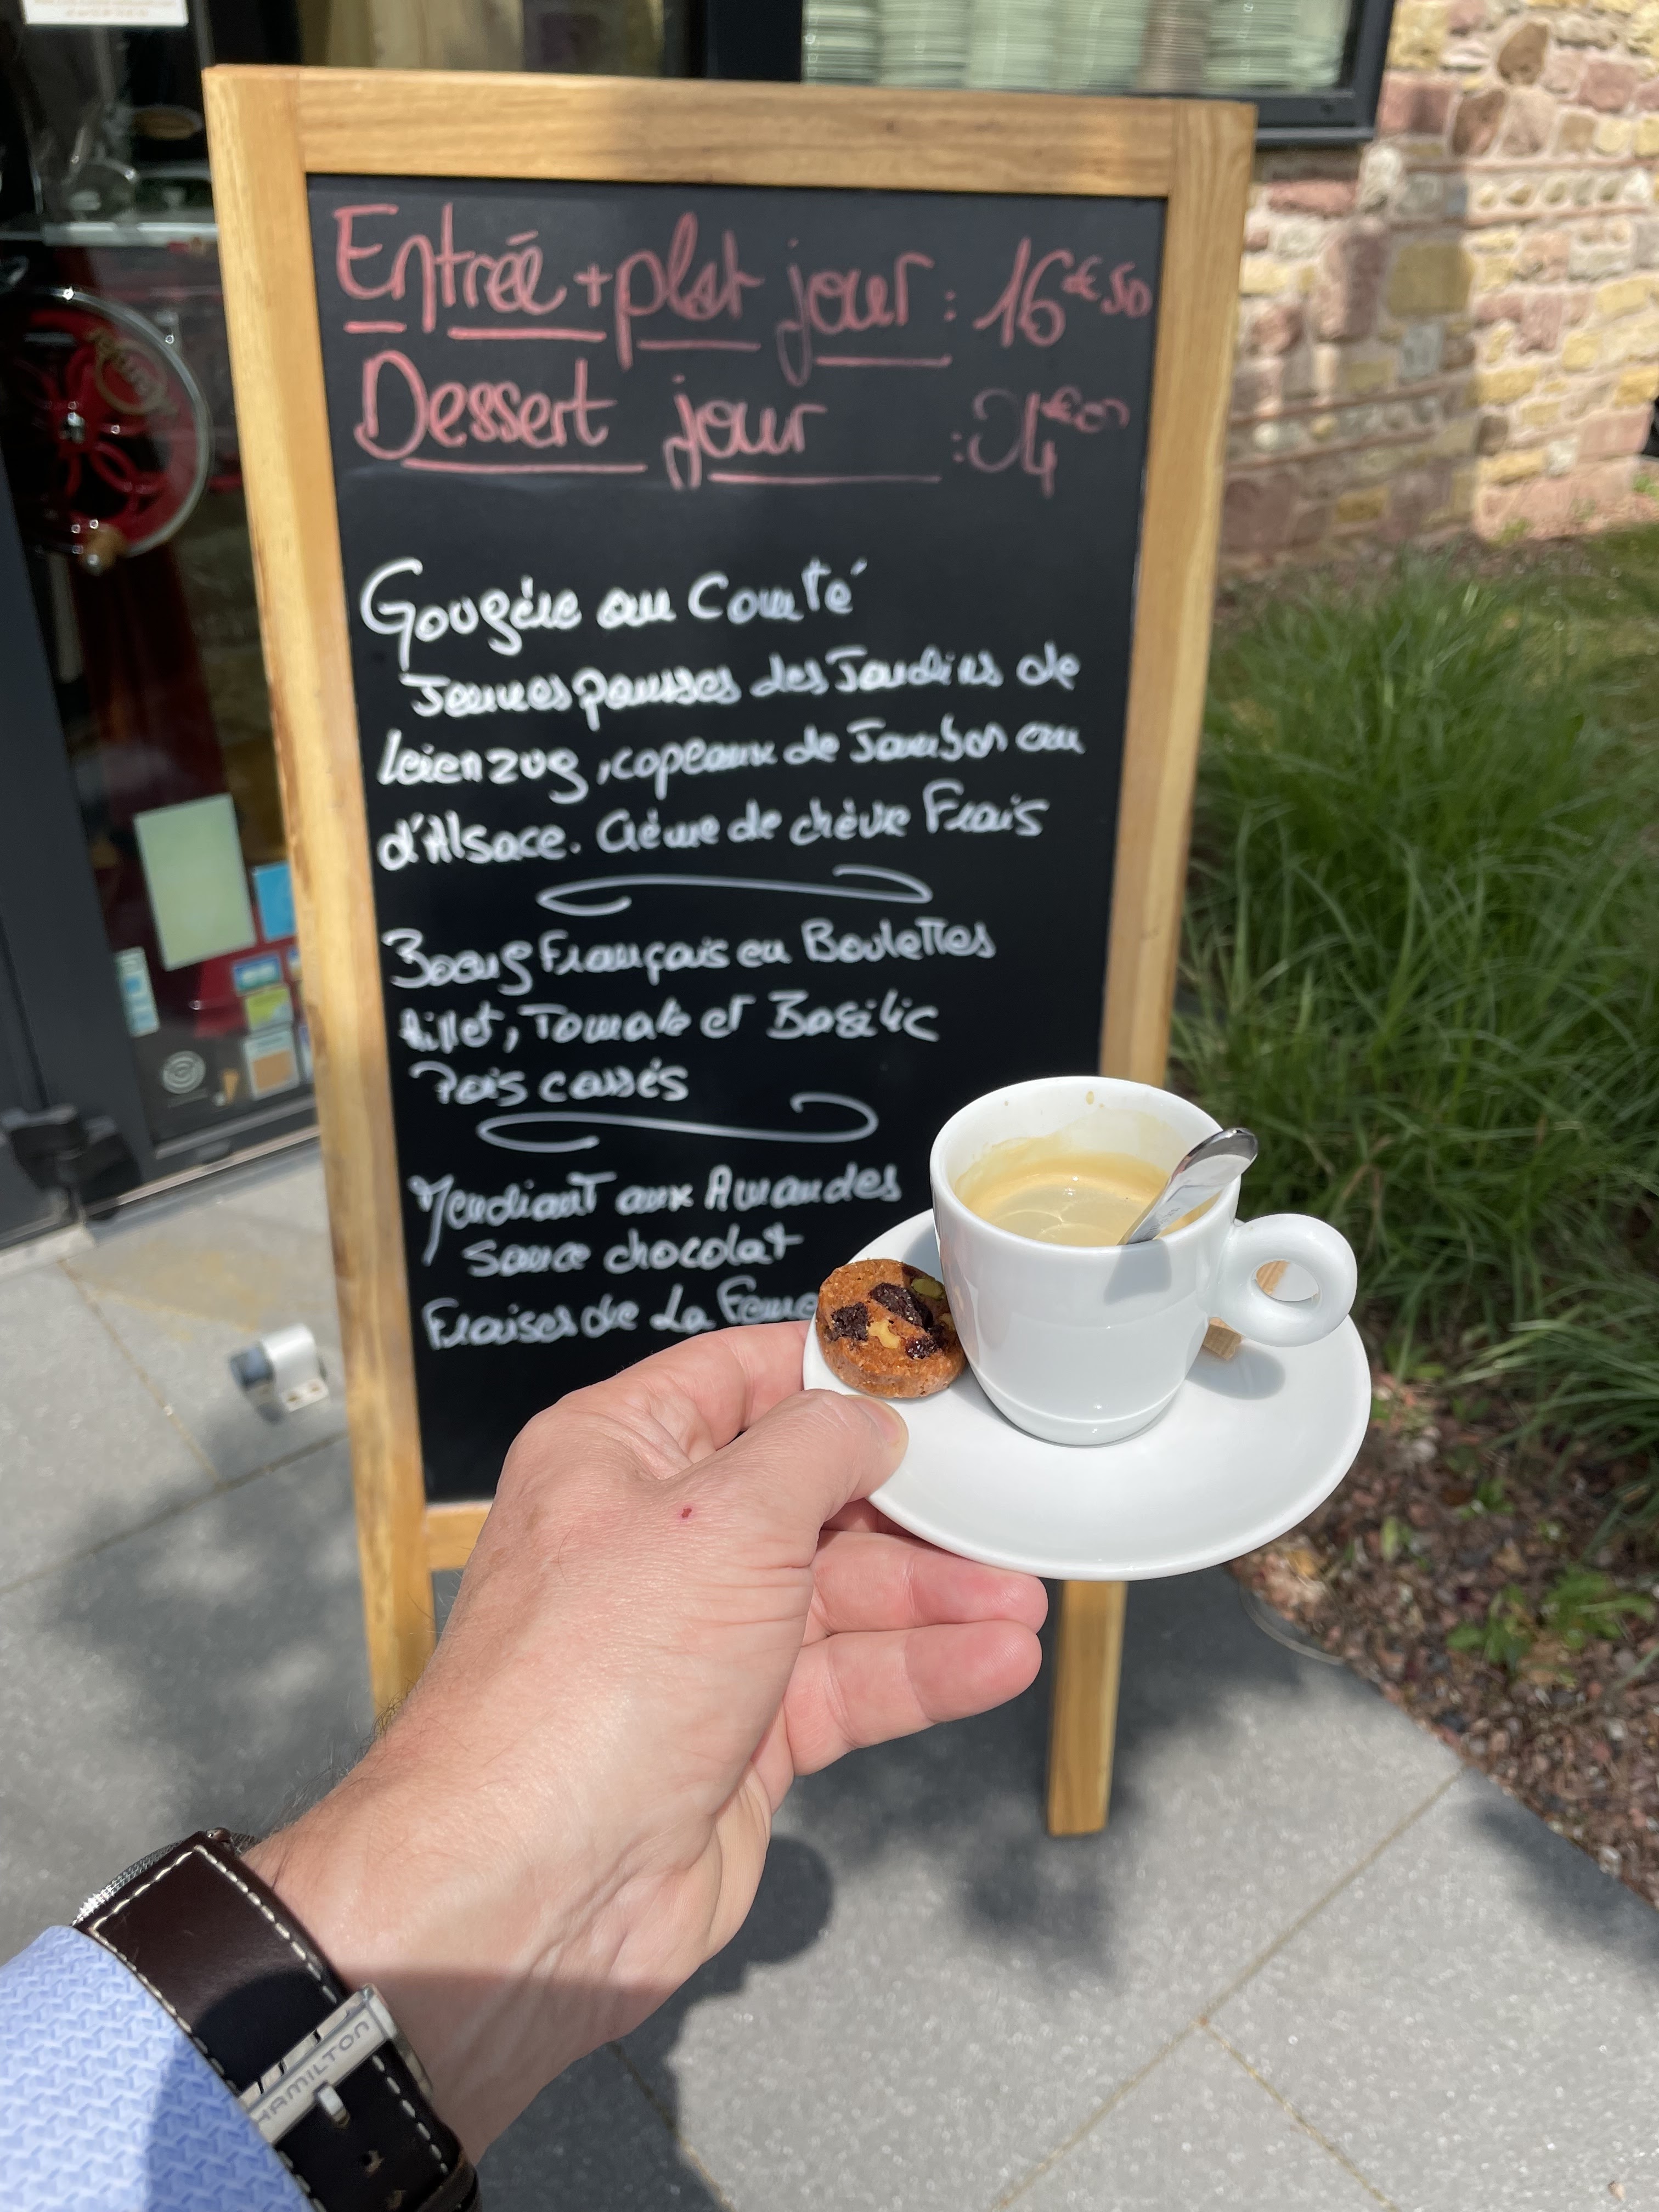 Entrée + plat jour : 16€.50
Dessert jour : 04€00
Gougère au Comté
Jeunes pousses des Jardins de
, copeaux de Jambon cru
d'Alsace. Crème de chèvre Frais
Boeuf Français en Boulettes
Millet, Tomate et Basilic
Pois cassés
Mendiant aux Amandes
Sauce chocolat
Fraises de La Ferme
HAMILTON